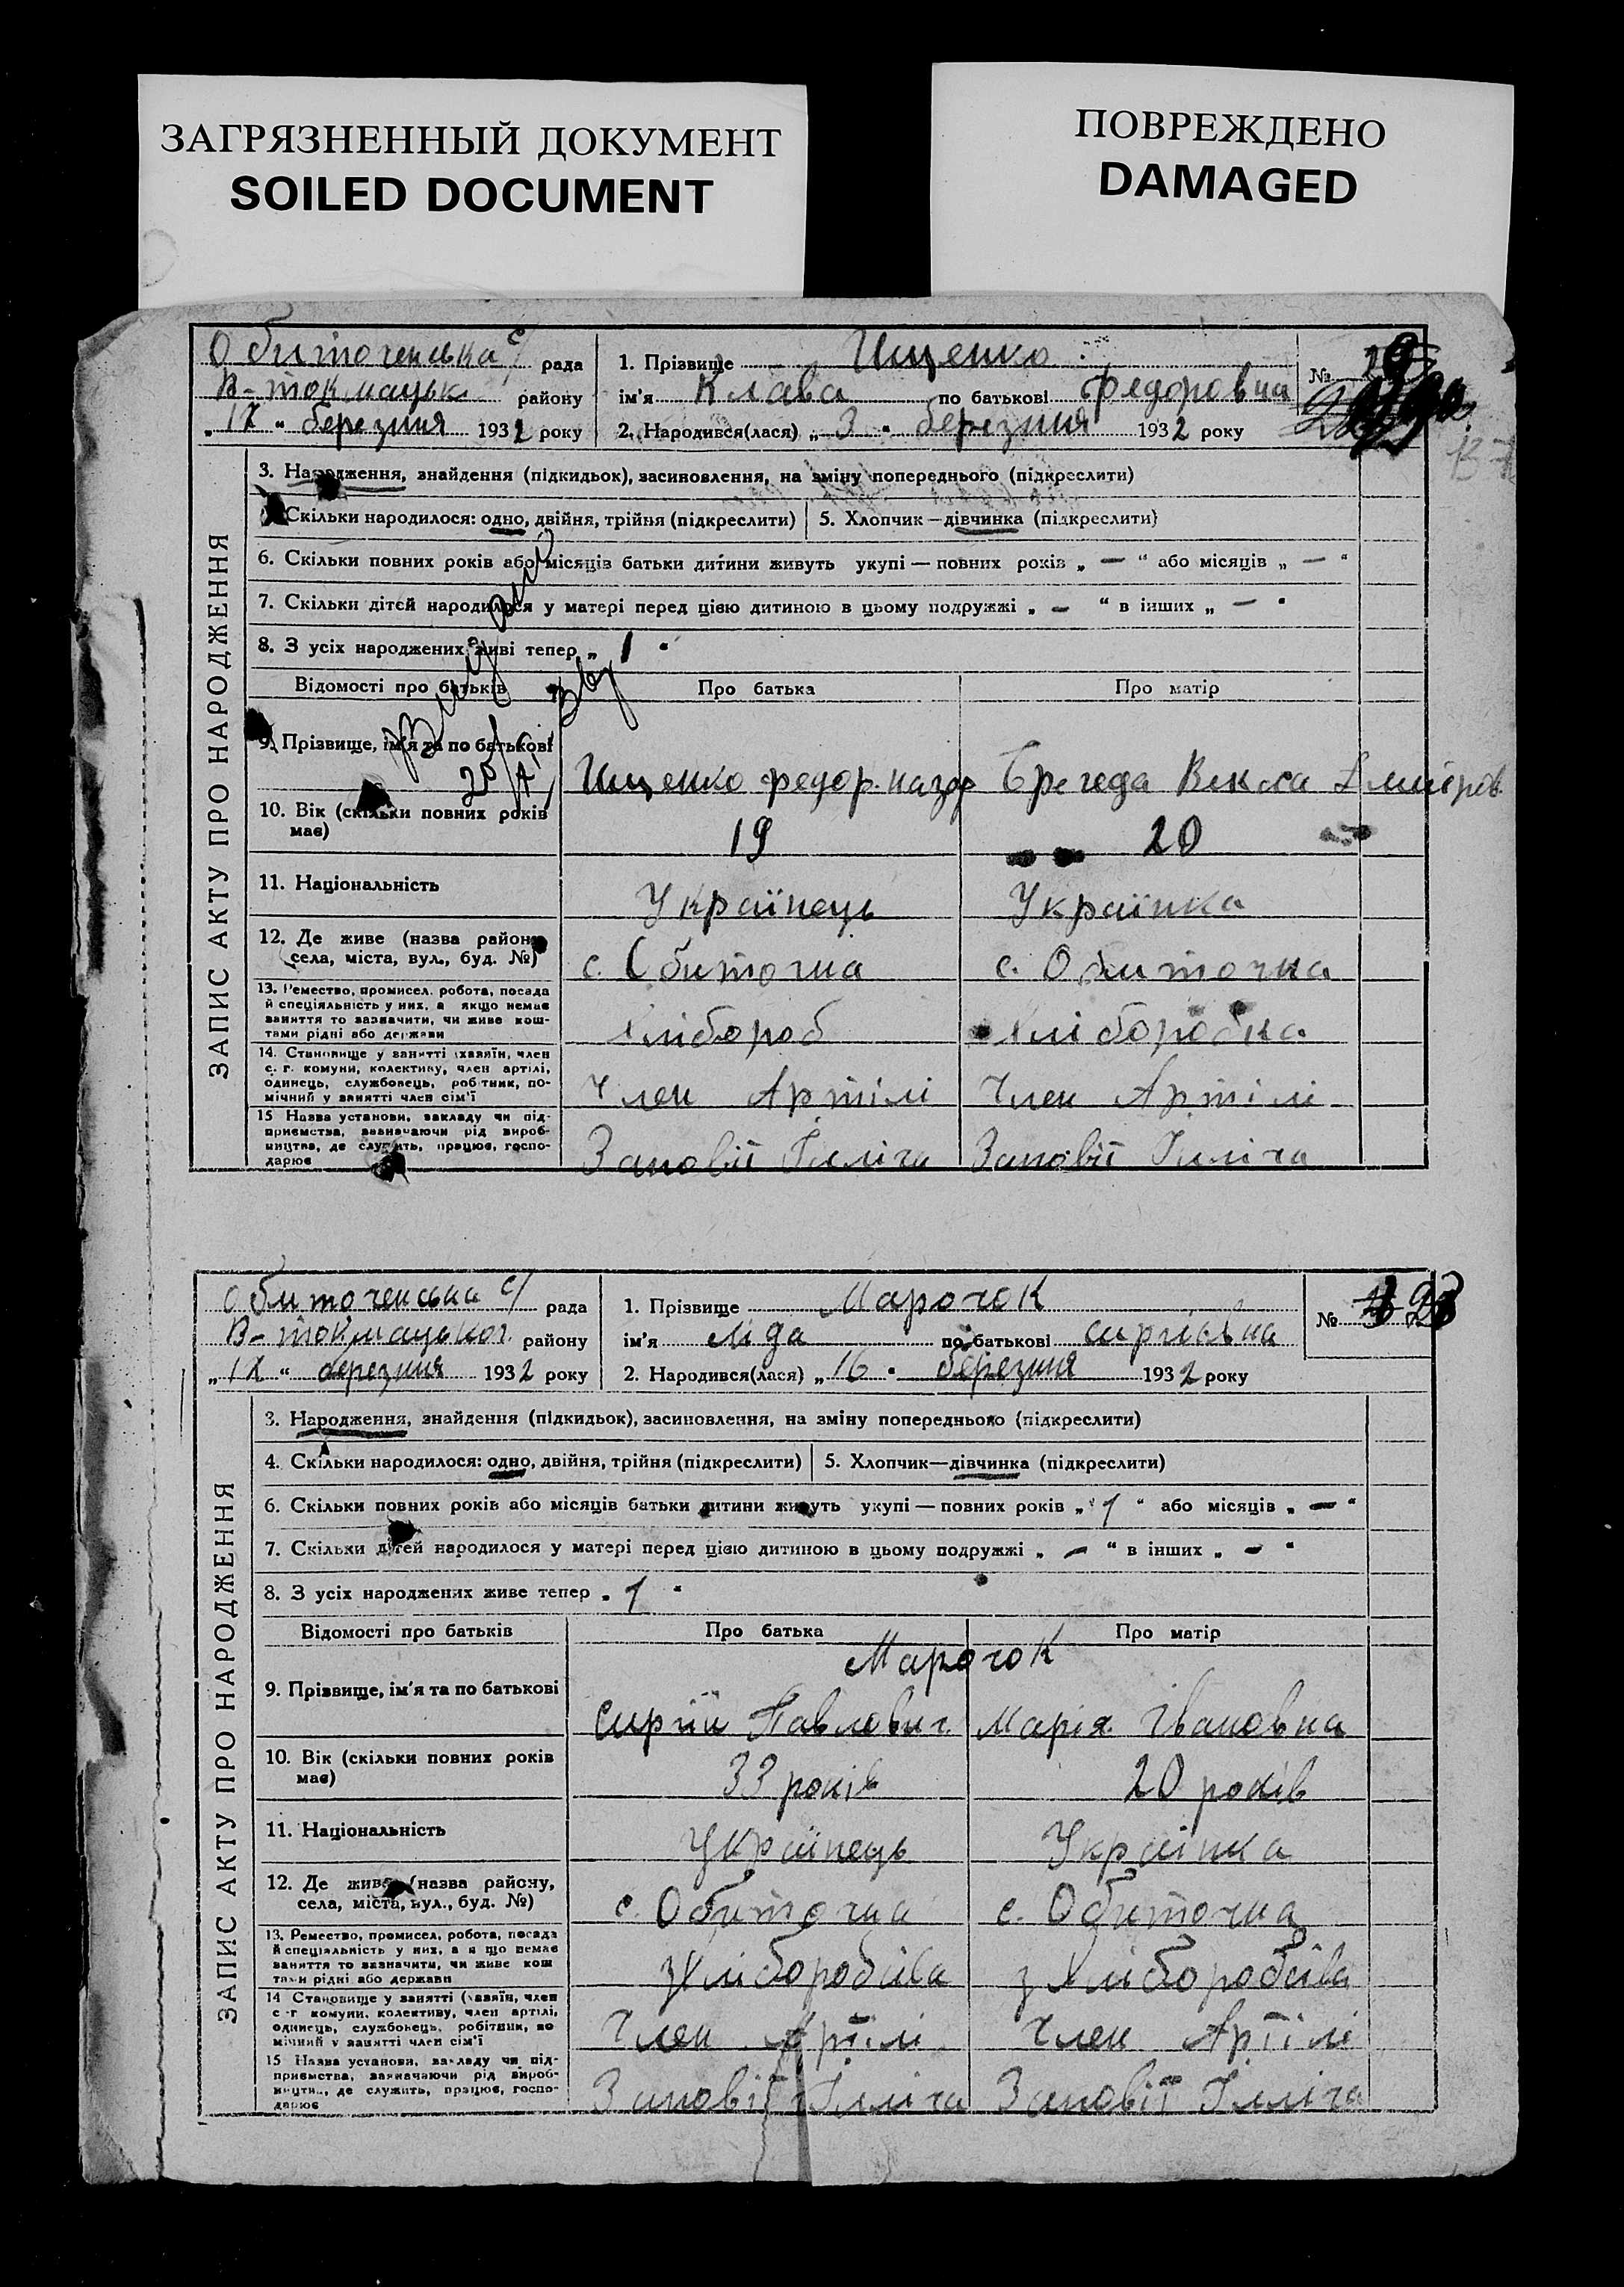 ЗАГРЯЗНЕННЫЙ ДОКУМЕНТ
SOILED DOCUMENT
ПОВРЕЖДЕНО
DAMAGED
Обиточенська с/ рада
В-токмацьк району
„ІХ“ березня 1932 року
1. Прізвище Ищенко
ім'я Клава по батькові Федоровна
2. Народився(лася) „3“ березния 1932 року
№
ЗАПИС АКТУ ПРО НАРОДЖЕННЯ
3. Народження, знайдення (підкидьок), засиновлення, на зміну попереднього (підкреслити)
Скільки народилося: одно, двійня, трійня (підкреслити) 5. Хлопчик—дівчинка (підкреслити)
6. Скільки повних років або місяців батьки дитини живуть укупі — повних років „—“ або місяців „—“
7. Скільки дітей народилося у матері перед цією дитиною в цьому подружжі „—“ в інших „—“
8. З усіх народжених живі тепер „1“
Відомості про батьків Про батька Про матір
9. Прізвище, ім'я та по батькові
Ищенко федор. назар Брегеда
10. Вік (скільки повних років має) 19 20
11. Національність Українець Українка
12. Де живе (назва району, села, міста, вул., буд. №) с. Обиточна с. Обиточна
13. Ремество, промисел, робота, посада й спеціяльність у них, а якщо немає заняття то зазначити, чи живе коштами рідні або держави
хлібороб хлібооробка
14. Становище у занятті (хазяїн, член с.-г. комуни, колективу, член артілі, одинець, службовець, робітник, помічний у занятті член сім'ї
Член Артілі Член Артілі
15 Назва установи, закладу чи підприємства, зазначаючи рід виробництва, де служить, працює, господарює
Заповіт Ілліча Заповіт Ілліча
Обиточенська с/ рада
В-токмацьког. району
„ІХ“ березния 1932 року
1. Прізвище Марочок
ім'я Ліда по батькові сиргіівна
2. Народився(лася) „16“ березния 1932 року
№
ЗАПИС АКТУ ПРО НАРОДЖЕННЯ
3. Народження, знайдення (підкидьок), засиновлення, на зміну попереднього (підкреслити)
4. Скільки народилося: одно, двійня, трійня (підкреслити) 5. Хлопчик—дівчинка (підкреслити)
6. Скільки повних років або місяців батьки дитини живуть укупі — повних років „1“ або місяців „—“
7. Скільки дітей народилося у матері перед цією дитиною в цьому подружжі „—“ в інших „—“
8. З усіх народжених живе тепер „1“
Відомості про батьків Про батька Про матір
Марочок
9. Прізвище, ім'я та по батькові
Сиргій Павлович. Марія. Івановна
10. Вік (скільки повних років має) 33 років 20 років
11. Національність Українець Українка
12. Де живе (назва району, села, міста, вул., буд. №) с. Обиточна с. Обиточна
13. Ремество, промисел, робота, посада й спеціяльність у них, а якщо немає заняття то зазначити, чи живе коштами рідні або держави
з хліборобсва з хліборобсва
14 Становище у занятті (хазяїн, член с.-г. комуни, колективу, член артілі, одинець, службовець, робітник, помічний у занятті член сім'ї
Член Артілі Член Артілі
15 Назва установи, закладу чи підприємства, зазначаючи рід виробництва, де служить, працює, господарює
Заповіт Ілліча Заповіт Ілліча